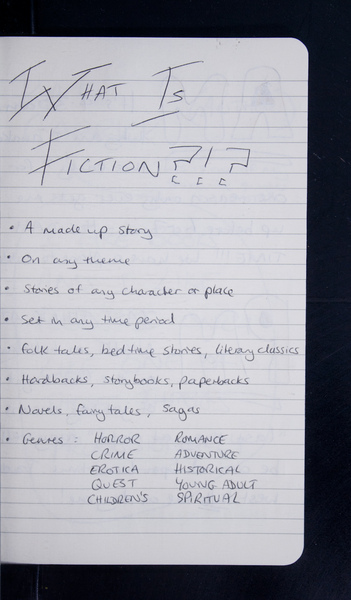 WHAT IS
FICTION ?!?
• A made up story
• On any theme
• Stories of any character or place
• Set in any time period
• Folk tales, bedtime stories, literary classics
• Hardbacks, storybooks, paperbacks
• Novels, fairy tales, sagas
• Genres : HORROR ROMANCE
CRIME ADVENTURE
EROTICA HISTORICAL
QUEST YOUNG ADULT
CHILDREN'S SPIRITUAL